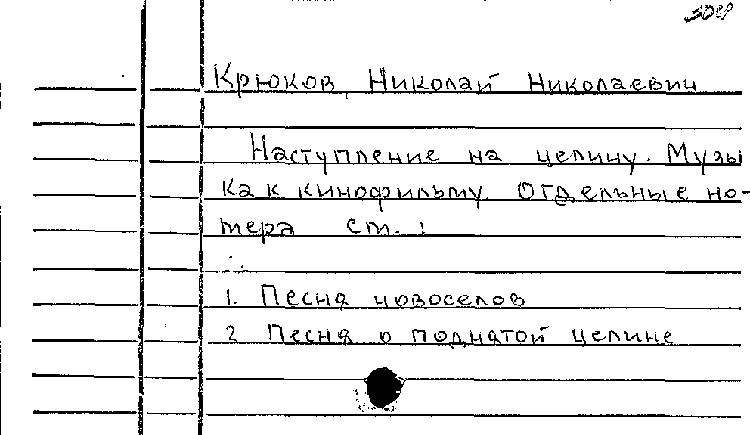 Крюков, Николай Николаевич
Наступление на целину. Музы
ка к кинофильму. Отдельные но-
мера см. :
1. Песня новоселов
2 Песня о поднятой целине